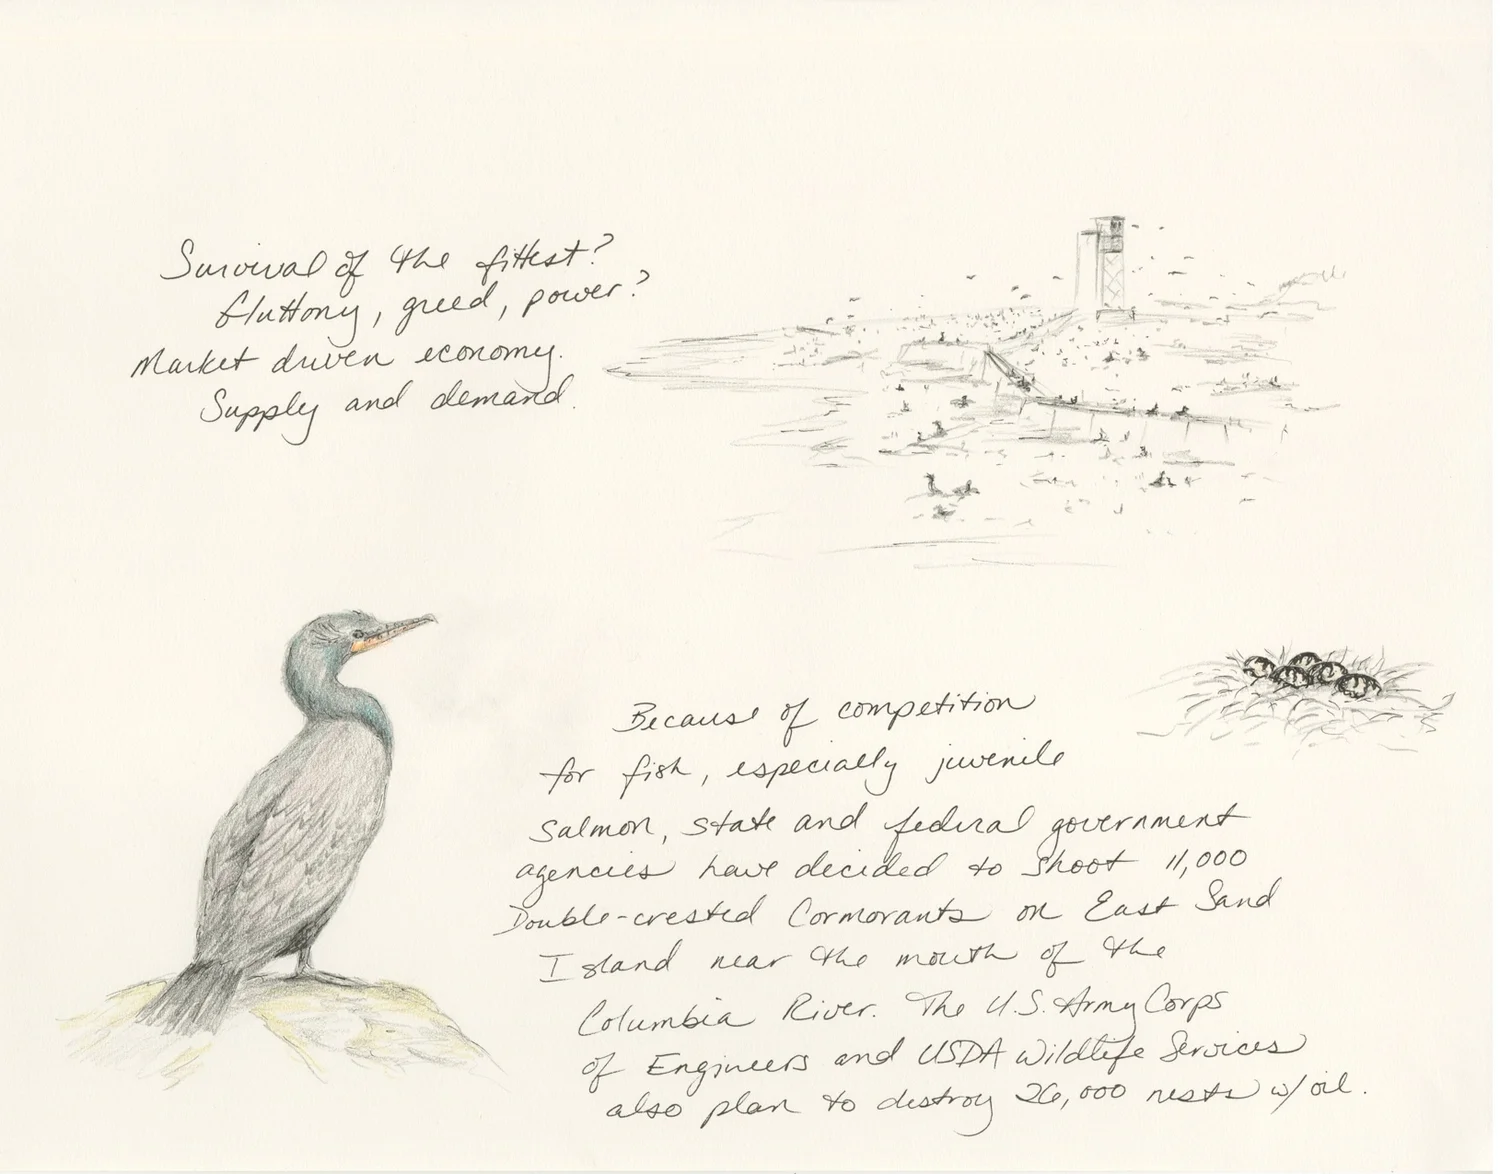 Survival of the fittest?
Gluttony, greed, power?
Market driven economy.
Supply and demand.
Because of competition
for fish, especially juvenile
salmon, state and federal government
agencies have decided to shoot 11,000
Double-crested Cormorants on East Sand
Island near the mouth of the
Columbia River. The U.S. Army Corps
of Engineers and USDA Wildlife Services
also plan to destroy 26,000 nests w/ oil.